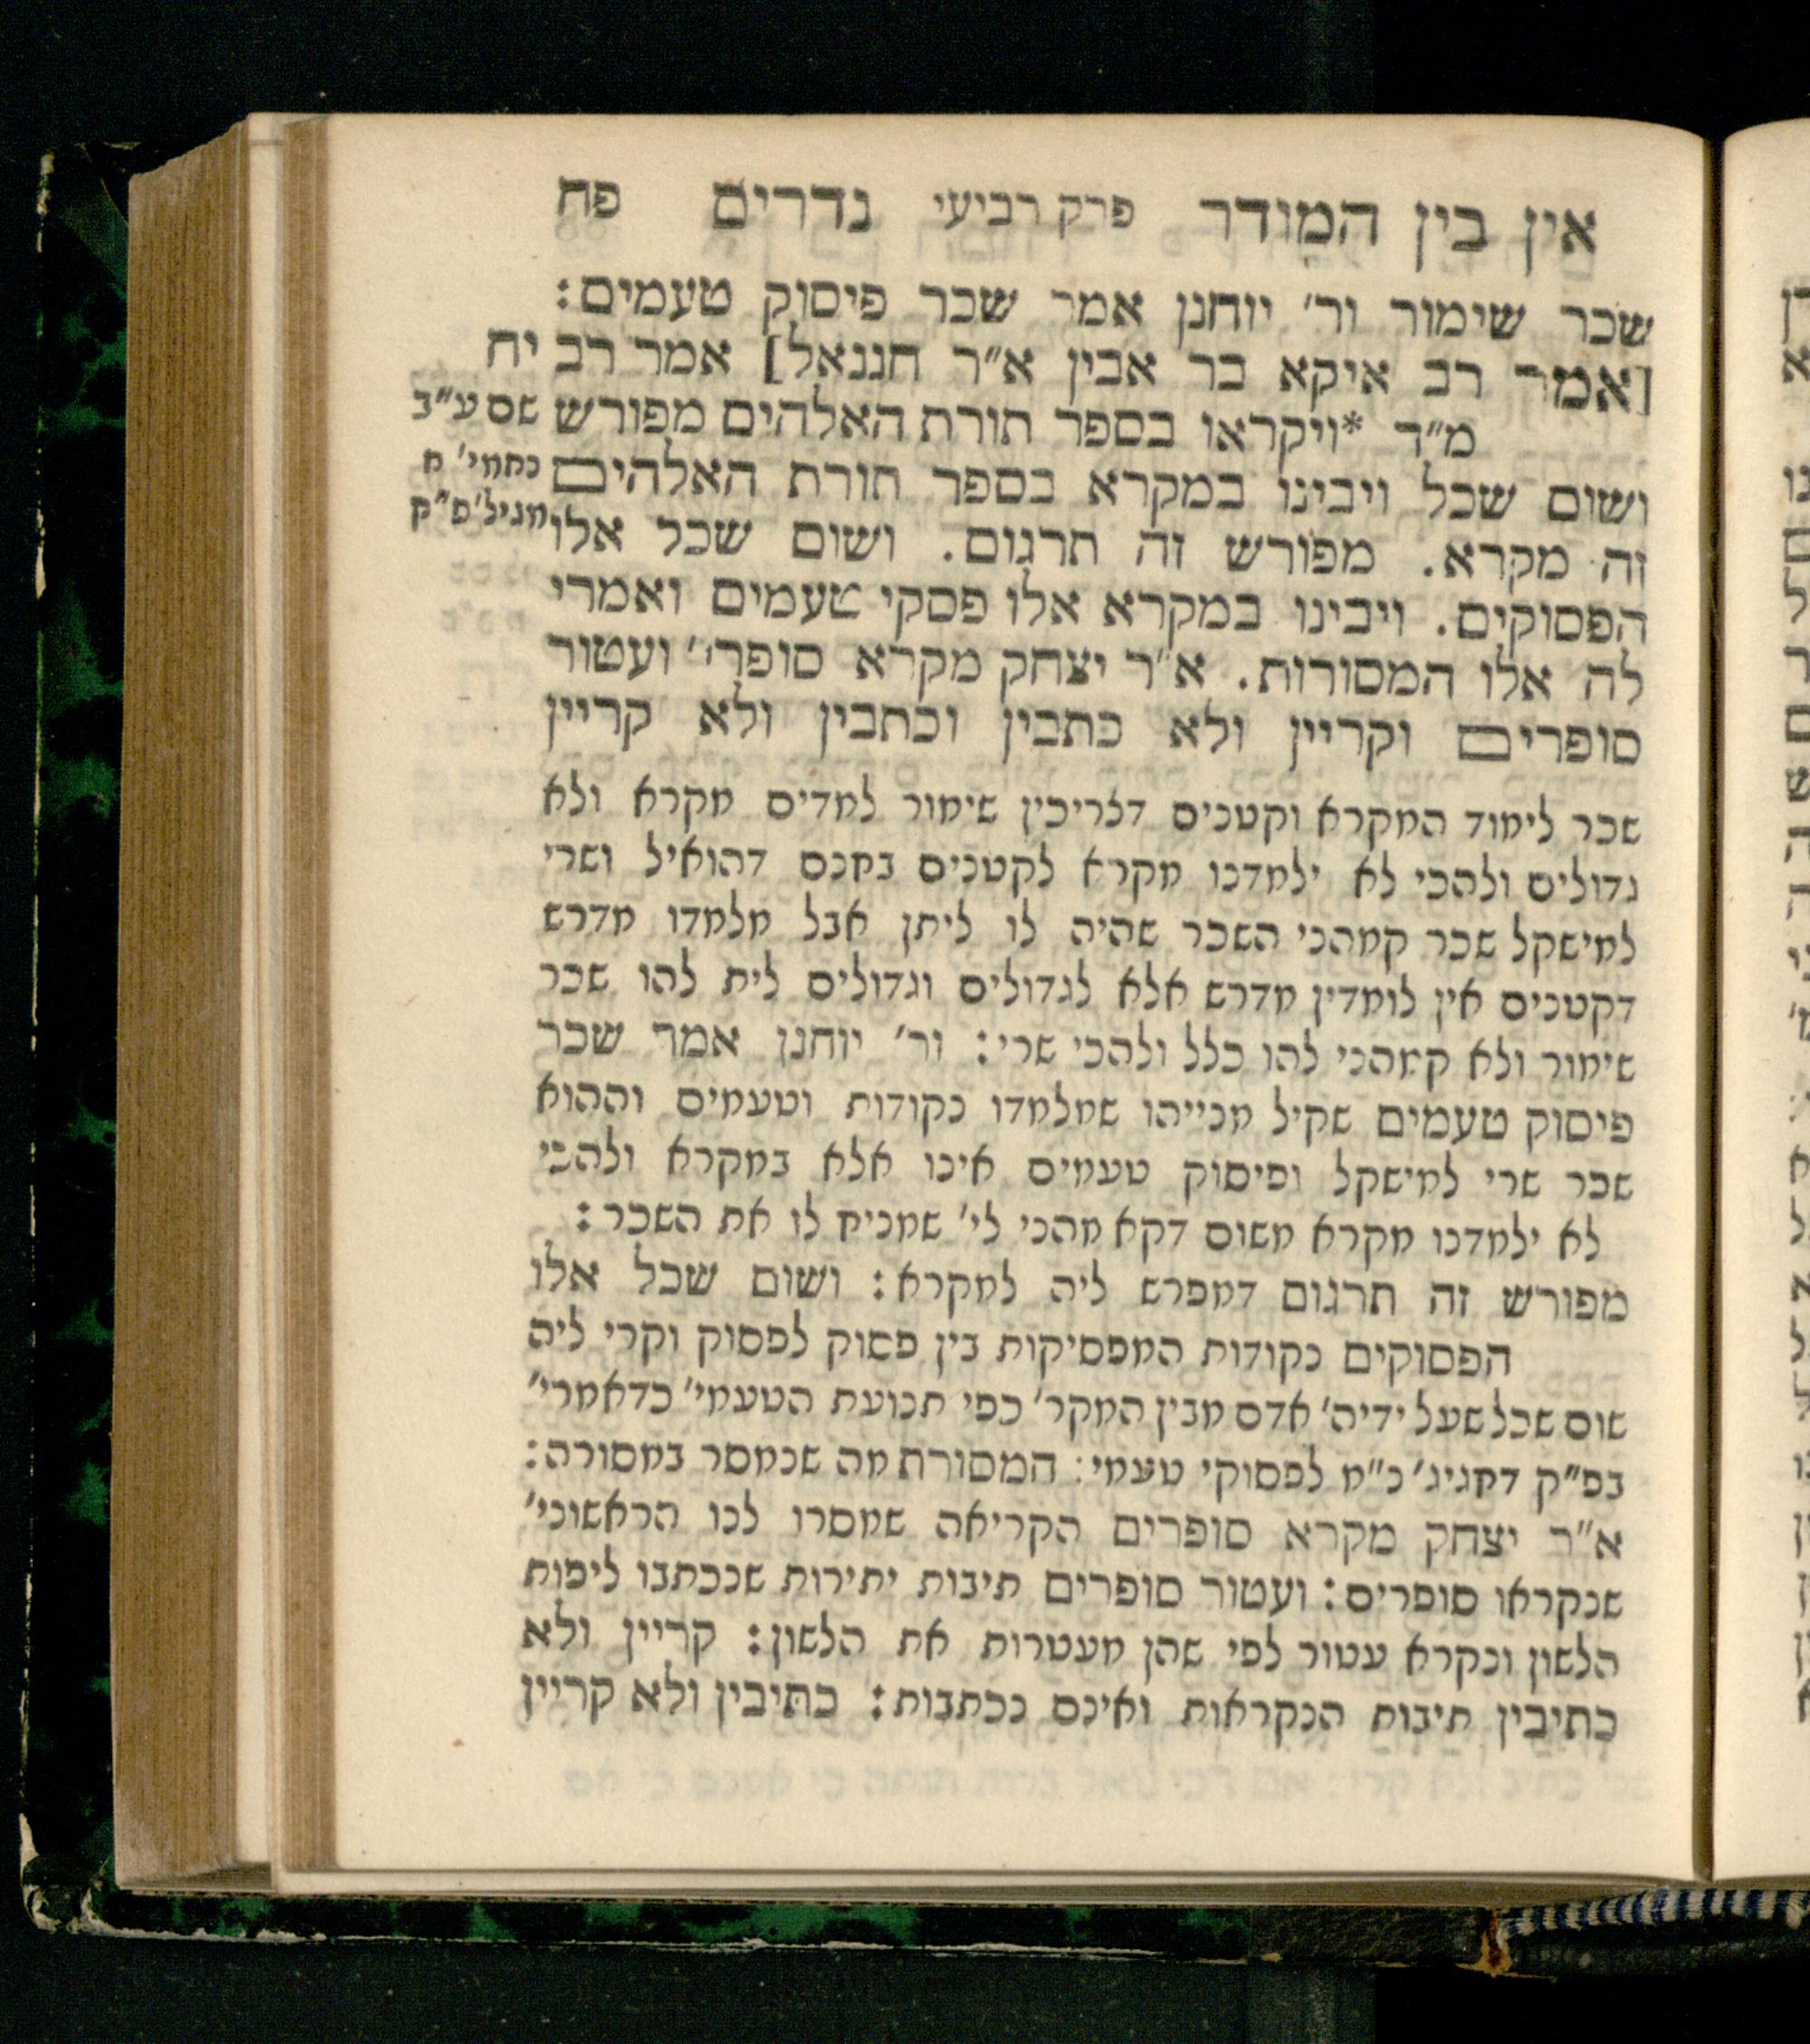 אין בין המודר פרק רביעי נדרים פח
שכר שימור ור׳ יוחנן אמר שכר פיסוק טעמים:
[אמר רב איקא בר אבין א״ר חננאל] אמר רב יח
מ״ד *ויקראו בספר תורת האלהים מפורש שם ע״ב
ושום שכל ויבינו במקרא בספר תורת האלהים נחמי׳ ח
זה מקרא. מפורש זה תרגום. ושום שכל אלו מגיל׳ פ״ק
הפסוקים. ויבינו במקרא אלו פסקי טעמים ואמרי
לה אלו המסורות. א״ר יצחק מקרא סופרי׳ ועטור
סופרים וקריין ולא כתבין וכתבין ולא קריין
שכר לימוד המקרא וקטנים דלריכין שימור למדים מקרא ולא
גדולים ולהכי לא ילמדנו מקרא לקטנים בחנם דהואיל ושרי
למישקל שכר קמהני השכר שהיה לו ליתן אבל מלמדו מדרש
דקטנים אין לומדין מדרש אלא לגדולים וגדולים לית להו שכר
שימור ולא קמהני להו כלל ולהכי שרי: ור׳ יוחנן אמר שכר
פיסוק טעמים שקיל מנייהו שמלמדו נקודות וטעמים וההוא
שכר שרי למישקל ופיסוק טעמים אינו אלא במקרא ולהכי
לא ילמדנו מקרא משום דקא מהני לי׳ שמניח לו את השכר:
מפורש זה תרגום דמפרש ליה למקרא: ושום שכל אלו
הפסוקים נקודות המפסיקות בין פסוק לפסוק וקרי ליה
שום שכל שעל ידיה׳ אדם מבין המקר׳ כפי תנועת הטעמי׳ כדאמרי׳
בפ״ק דחגיג׳ נ״מ לפסוקי טעמי: המסורת מה שנמסר במסורה:
א״ר יצחק מקרא סופרים הקריאה שמסרו לנו הראשוני׳
שנקראו סופרים: ועטור סופרים תיבות יתירות שנכתבו ליפות
הלשון ונקרא עטור לפי שהן מעטרות את הלשון: קריין ולא
כתיבין תיבות הנקראות ואינם נכתבות: כתיבין ולא קריין